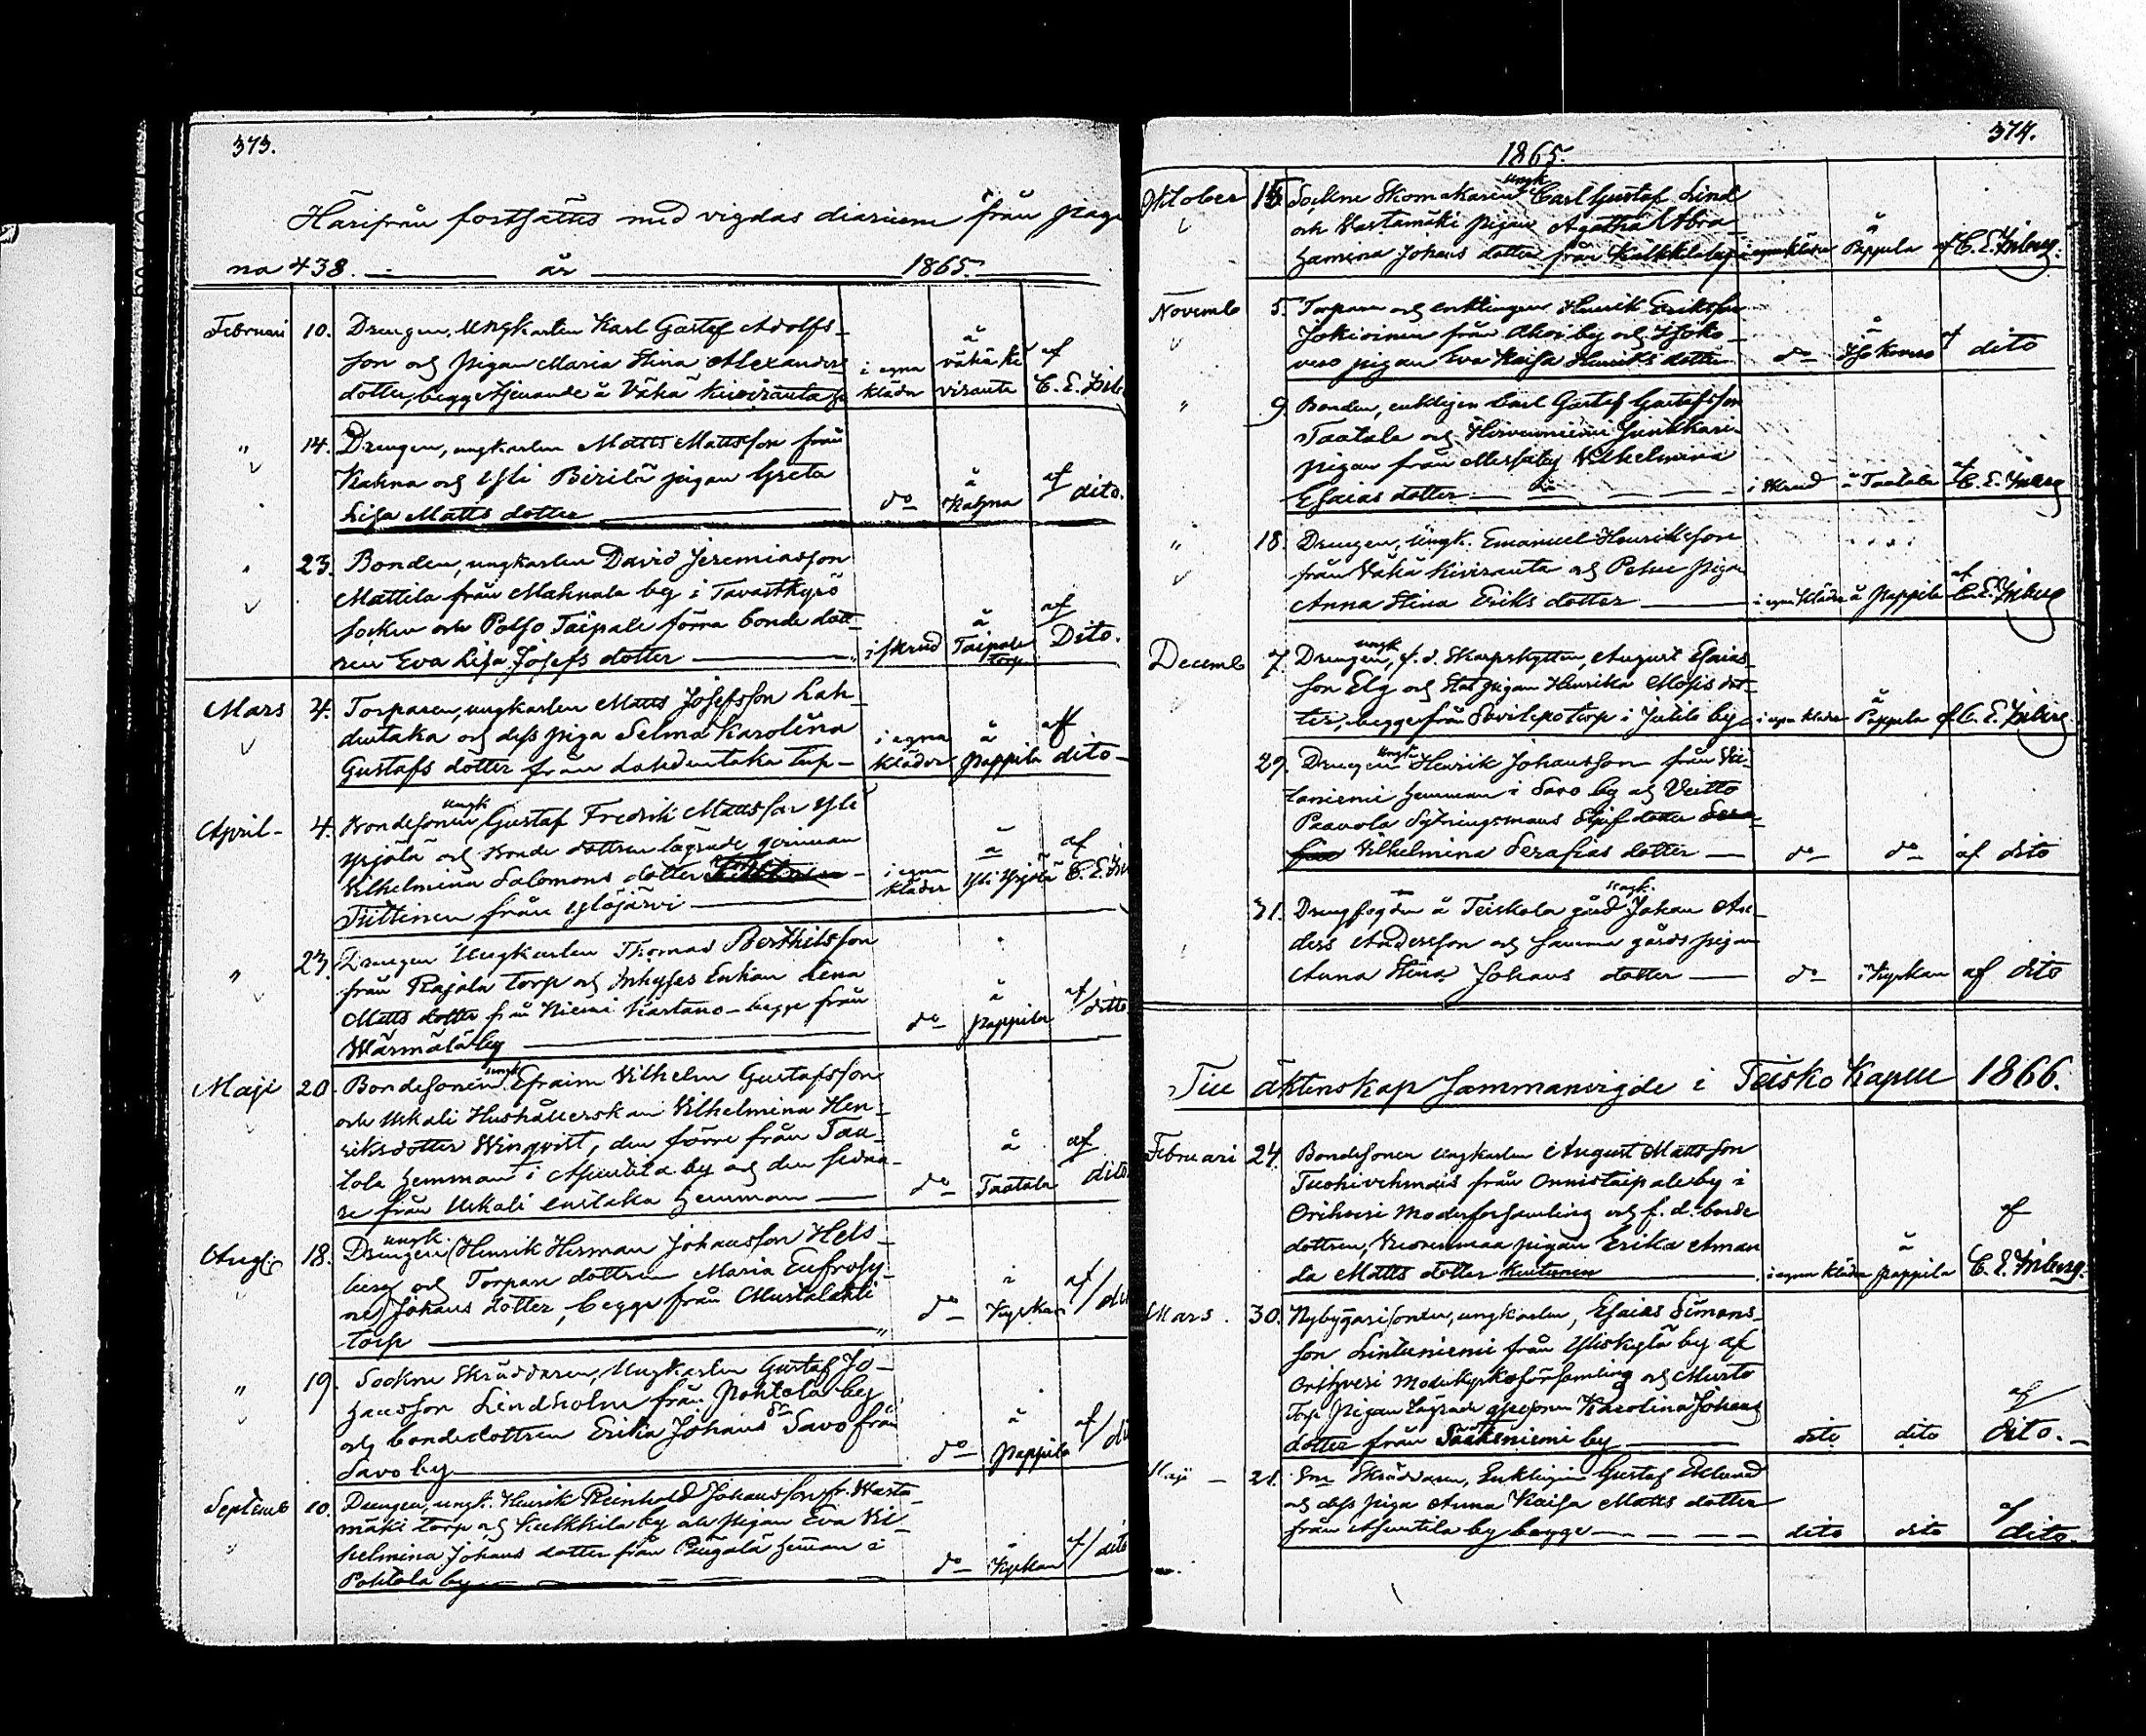 373.
Härifrån fortsättes med vigdas diarium från pagi
na 438. — år — 1865.
Februari 10. Drengen, Ungkarlen Karl Gustaf Adolfs-
son och pigan Maria Stina Alexanders
dotter, begge tjenande å Väkä Kiviranta
i egna kläder
å väkä Ki viranta
af C. E.
" 14. Drengen, ungkarlen Matts Mattsson från
Kahna och Yli Pirilä pigan Greta
Lisa Matts dotter
do å Kahna af dito.
" 23. Bonden, ungkarlen David Jeremiasson
Mattila från Mahnala by i Tavastkyrö
socken och Polso Taipale förra bonde dott-
ren Eva Lisa Josefs dotter
i skrud å Taipale torp af Dito.
Mars 4. Torparen, ungkarlen Matts Josefsson Lah-
dentaka och dess piga Selma Karolina
Gustafs dotter från Lahdentaka
i egna kläder å pappila af dito
April 4. Bondesonen ungk Gustaf Fredrik Mattsson Yli
Yrjölä och Bonde dottren lägrade qvinnan
Vilhelmina Salomons dotter
Tiittinen från Ylöjärvi
i egna kläder å Yli Yrjölä af C. E.
" 23. Drengen Ungkarlen Thomas Berthilsson
från Rajala torp och Inhyses Enkan Lena
Matts dotter från Niemi Kartano - begge från
Wärmälä by
do å pappila af ditto
Maji 20. Bondesonen ungk Efraim Vilhelm Gustafsson
och Uskali Hushållerskan Vilhelmina Hen-
riksdotter Winqvist, den förre från Taa-
tala hemman i Asuntila by och den sedna-
re från Uskali enstaka hemman
do å Taatala af dito
Aug. 18. Drengen ungk. Henrik Herman Johansson Hels-
berg och Torpare dottren Maria Eufrosy-
ne Johans dotter, begge från Mustalahti
torp
do i Kyrkan af
" 19. Sockne Skräddaren, Ungkarlen Gustaf Jo-
hansson Lindholm från Pohtola by
och bondedottren Erika Johans dr Savo från
Savo by
do å pappila af
Septemb 10. Drengen, ungk. Henrik Reinhold Johansson fr. Wasta-
mäki torp och Kulkkila by och pigan Eva Vil-
helmina Johans dotter från Pengälä heman i
Pohtola by
do i Kyrkan af dito
374.
1865.
Oktober Sockne Skomakaren ungk Carl Gustaf Lind
och Vastamäki pigan Agatha Abra-
hamina Johans dotter från Kulkkila by
i egna kläder å Pappila af C. E. Friberg.
Novemb 5. Torparen och enklingen Henrik Eriksson
Jokioinen från by och Isoko-
vero pigan Eva Kaisa Henriks dotter
do å Isokovero af dito
" 9. Bonden, enklingen Carl Gustaf Gustafsson
Taatala och Hirvenniemi Junkkari
pigan från by Vilhelmina
Esaias dotter
i skrud å Taatala af C. E. Friberg
" 18. Drengen, Ungk. Emanuel Henriksson
från Väkä Kiviranta och pigan
Anna Stina Eriks dotter
i egna kläder å pappila af C. E. Friberg
Decemb 7. Drengen, ungk f. d. Skarpskytten, August Esaias-
son Elg och pigan Henrika Mosis dot-
ter, begge från torp i by
i egna kläder å Pappila af C. E. Friberg.
29. Drengen ungk. Henrik Johansson från Vii-
taniemi hemman i Savo by och Veitto
Paavola dotter
Vilhelmina Serafias dotter
do do af dito
31. Drengfogden å Teiskola gård ungk. Johan An-
ders Andersson och samma gårds pigan
Anna Stina Johans dotter
do i Kyrkan af dito
Till äktenskap sammanvigde i Teisko Kapell 1866.
Februari 24. Bondesonen ungkarlen August Mattsson
från Onnistaipale by i
Orihvesi Moderförsamling och f. d. bonde
dottren, Vuorenmaa pigan Erika Aman
da Matts dotter
i egna kläder å pappila af C. E. Friberg.
Mars. 30. Nybyggaresonen, ungkarlen, Esaias Simons-
son Lintuniemi från Yliskylä by af
Orihvesi Moderkyrkoförsamling och Murto
Torp Pigan lägrade qvinnan Karolina Johans
dotter från Sääksniemi by
dito dito af dito.
Maji 21. Skräddaren, Enklingen Gustaf Eklund
och dess piga Anna Kaisa Matts dotter
från Asuntila by begge
dito dito af dito.